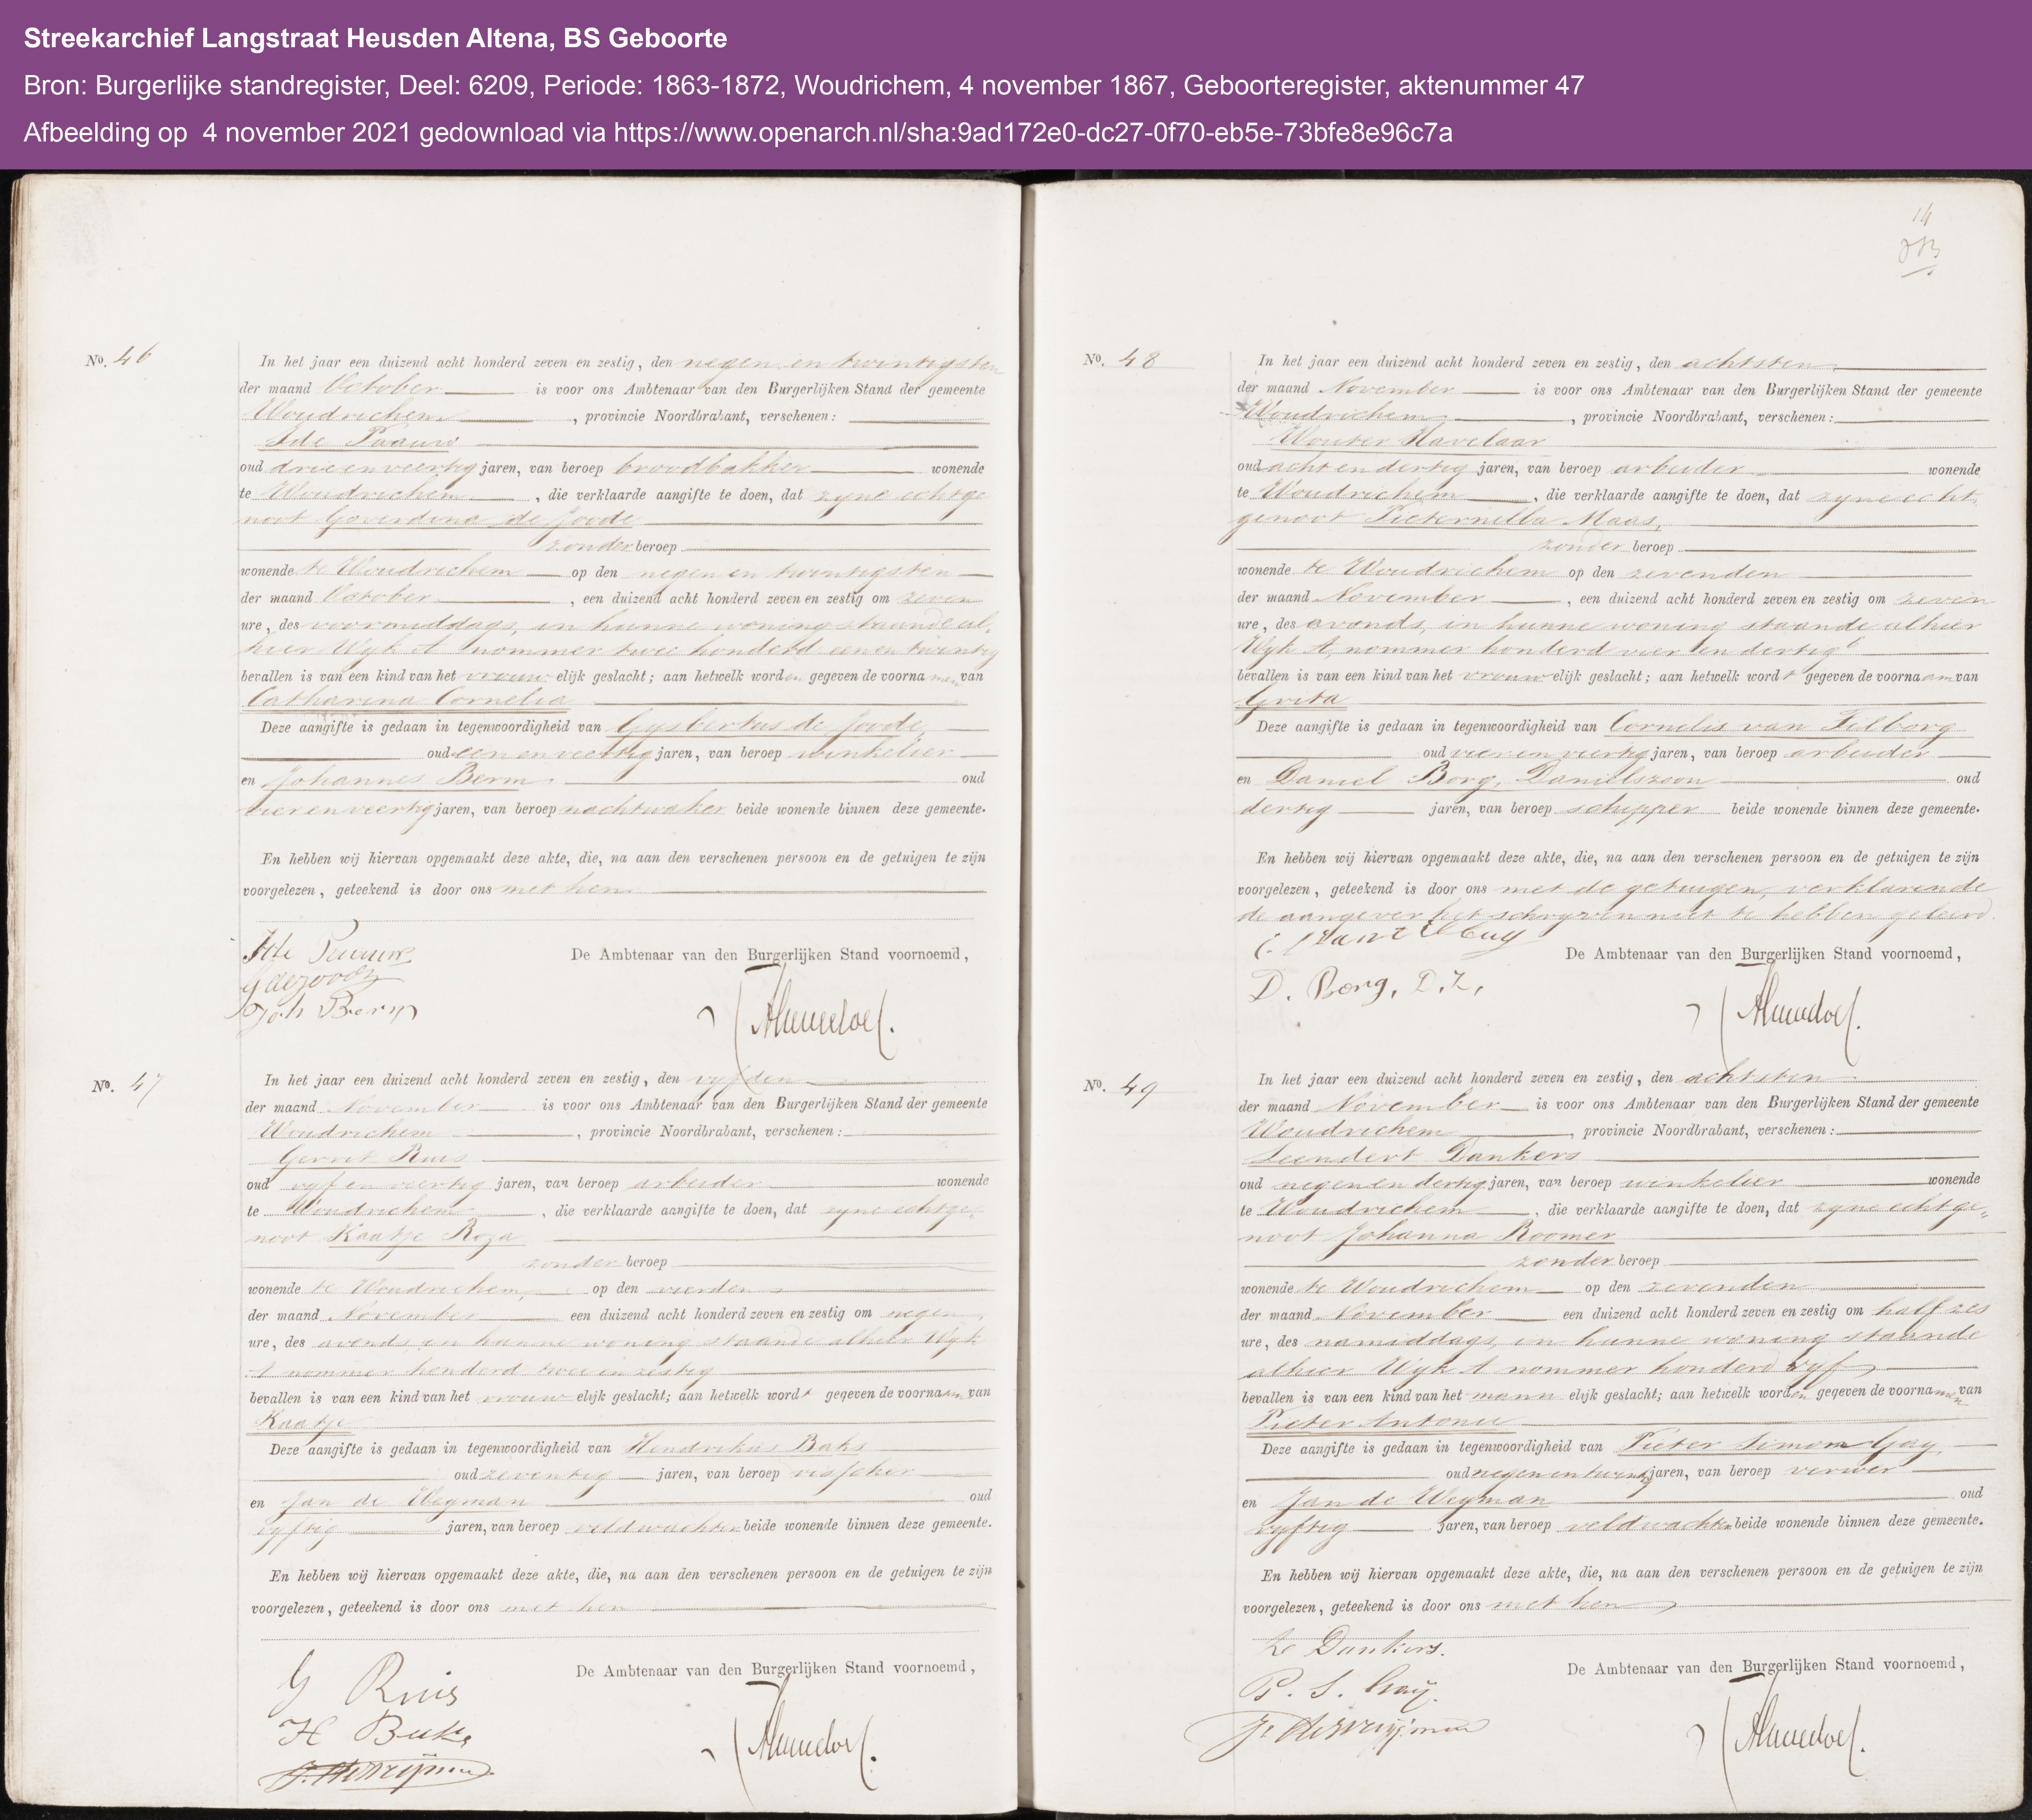 Streekarchief Langstraat Heusden Altena, BS Geboorte
Bron: Burgerlijke standregister, Deel: 6209, Periode: 1863-1872, Woudrichem, 4 november 1867, Geboorteregister, aktenummer 47
Afbeelding op 4 november 2021 gedownload via https://www.openarch.nl/sha:9ad172e0-dc27-0f70-eb5e-73bfe8e96c7a
No. 46
In het jaar een duizend acht honderd zeven en zestig, den negen en twintigsten
der maand October is voor ons Ambtenaar van den Burgerlijken Stand der gemeente
Woudrichem, provincie Noordbrabant, verschenen:
Ide Paauw
oud drie en veertig jaren, van beroep broodbakker wonende
te Woudrichem, die verklaarde aangifte te doen, dat zyne echtge
noot Goverdina de Joode
zonder beroep
wonende te Woudrichem op den negen en twintigsten
der maand October, een duizend acht honderd zeven en zestig om zeven
ure, des voormiddags, in hunne woning staande al-
hier Wyk A nommer twee honderd een en twintig
bevallen is van een kind van het vrouwelijk geslacht; aan hetwelk worden gegeven de voornamen van
Catharina Cornelia
Deze aangifte is gedaan in tegenwoordigheid van Gysbertus de Joode,
oud een en veertig jaren, van beroep winkelier
en Johannes Berm oud
vier en veertig jaren, van beroep nachtwaker beide wonende binnen deze gemeente.
En hebben wij hiervan opgemaakt deze akte, die, na aan den verschenen persoon en de getuigen te zijn
voorgelezen, geteekend is door ons met hen
Ide Paauw
G de Joode
Joh Berm
De Ambtenaar van den Burgerlijken Stand voornoemd,
No. 47
In het jaar een duizend acht honderd zeven en zestig, den vyfden
der maand November is voor ons Ambtenaar van den Burgerlijken Stand der gemeente
Woudrichem, provincie Noordbrabant, verschenen:
Gerrit Ruis
oud vyf en veertig jaren, van beroep arbeider wonende
te Woudrichem, die verklaarde aangifte te doen, dat zyne echtge-
noot Kaatje Roza
zonder beroep
wonende te Woudrichem, op den vierden
der maand November een duizend acht honderd zeven en zestig om negen
ure, des avonds, in hunne woning staande alhier Wyk
A nommer honderd twee en zestig
bevallen is van een kind van het vrouwelijk geslacht; aan hetwelk wordt gegeven de voornaam van
Kaatje
Deze aangifte is gedaan in tegenwoordigheid van Hendrikus Baks
oud zeventig jaren, van beroep visscher
en Jan de Wegman oud
vyftig jaren, van beroep veldwachter beide wonende binnen deze gemeente.
En hebben wij hiervan opgemaakt deze akte, die, na aan den verschenen persoon en de getuigen te zijn
voorgelezen, geteekend is door ons met hen
G Ruis
H Baks
De Ambtenaar van den Burgerlijken Stand voornoemd,
14
No. 48
In het jaar een duizend acht honderd zeven en zestig, den achtsten
der maand November is voor ons Ambtenaar van den Burgerlijken Stand der gemeente
Woudrichem, provincie Noordbrabant, verschenen:
Wouter Havelaar
oud acht en dertig jaren, van beroep arbeider wonende
te Woudrichem, die verklaarde aangifte te doen, dat zyne echt
genoot Pieternella Maas,
zonder beroep
wonende te Woudrichem op den zevenden
der maand November, een duizend acht honderd zeven en zestig om zeven
ure, des avonds, in hunne woning staande alhier
Wyk A, nommer honderd vier en dertig b
bevallen is van een kind van het vrouwelijk geslacht; aan hetwelk wordt gegeven de voornaam van
Grita
Deze aangifte is gedaan in tegenwoordigheid van Cornelis van Tilborg
oud vier en veertig jaren, van beroep arbeider
en Daniel Borg, Danielszoon oud
dertig jaren, van beroep schipper beide wonende binnen deze gemeente.
En hebben wij hiervan opgemaakt deze akte, die, na aan den verschenen persoon en de getuigen te zijn
voorgelezen, geteekend is door ons met de getuigen, verklarende
de aangever het schryven niet te hebben geleerd.
D. Borg, D.Z.
De Ambtenaar van den Burgerlijken Stand voornoemd,
No. 49
In het jaar een duizend acht honderd zeven en zestig, den achtsten
der maand November is voor ons Ambtenaar van den Burgerlijken Stand der gemeente
Woudrichem, provincie Noordbrabant, verschenen:
Leendert Dankers
oud negen en dertig jaren, van beroep winkelier wonende
te Woudrichem, die verklaarde aangifte te doen, dat zyne echtge-
noot Johanna Roomer
zonder beroep
wonende te Woudrichem op den zevenden
der maand November een duizend acht honderd zeven en zestig om half zes
ure, des namiddags, in hunne woning staande
alhier Wyk A nommer honderd vyf
bevallen is van een kind van het mannelijk geslacht; aan hetwelk worden gegeven de voornamen van
Pieter Antonie
Deze aangifte is gedaan in tegenwoordigheid van Pieter Simon Gay
oud negen en twintig jaren, van beroep verwer
en Jan de Wegman oud
vyftig jaren, van beroep veldwachter beide wonende binnen deze gemeente.
En hebben wij hiervan opgemaakt deze akte, die, na aan den verschenen persoon en de getuigen te zijn
voorgelezen, geteekend is door ons met hen
Le Dankers.
P. S. Gay.
De Ambtenaar van den Burgerlijken Stand voornoemd,